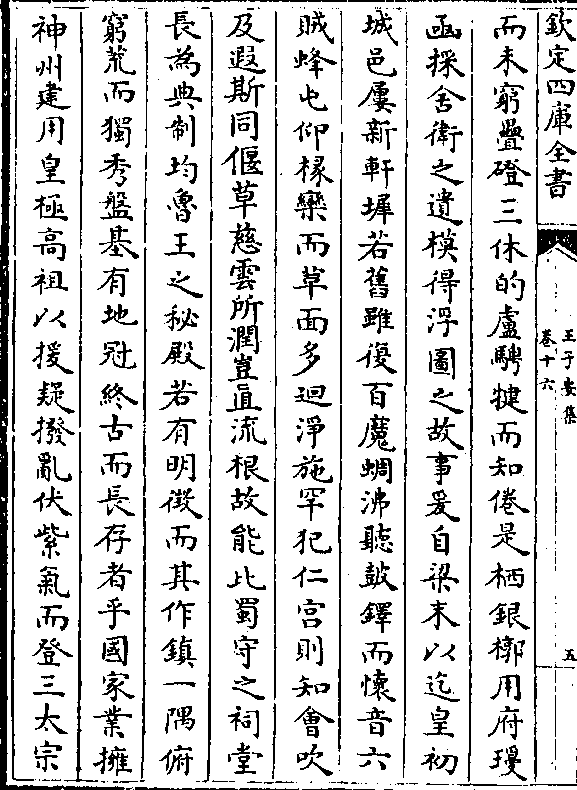 欽定四庫全書
王子安集
卷十六
五
而未窮疊磴三休的盧騁揵而知倦是栖銀槨用府瓊
函採舍衛之遺模得浮圖之故事爰自梁末以迄皇初
城邑屢新軒墀若舊雖復百魔蜩沸聽鼓鐸而懷音六
賊蜂屯仰椽欒而草面多迴淨施罕犯仁宮則知會吹
及遐斯同偃草慈雲所潤豈直流根故能比蜀守之祠堂
長為典制均魯王之秘殿若有明徴而其作鎮一隅俯
窮荒而獨秀盤基有地冠終古而長存者乎國家業擁
神州建用皇極高祖以援疑撥亂伏紫氣而登三太宗